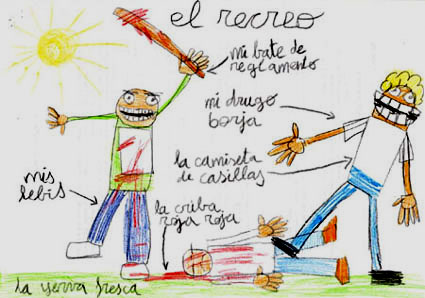 el recreo
mi bate de
reglamento
mi drugo
borja
la camiseta
de casillas
mis
lebis
la criba
roja roja
la yerva fresca